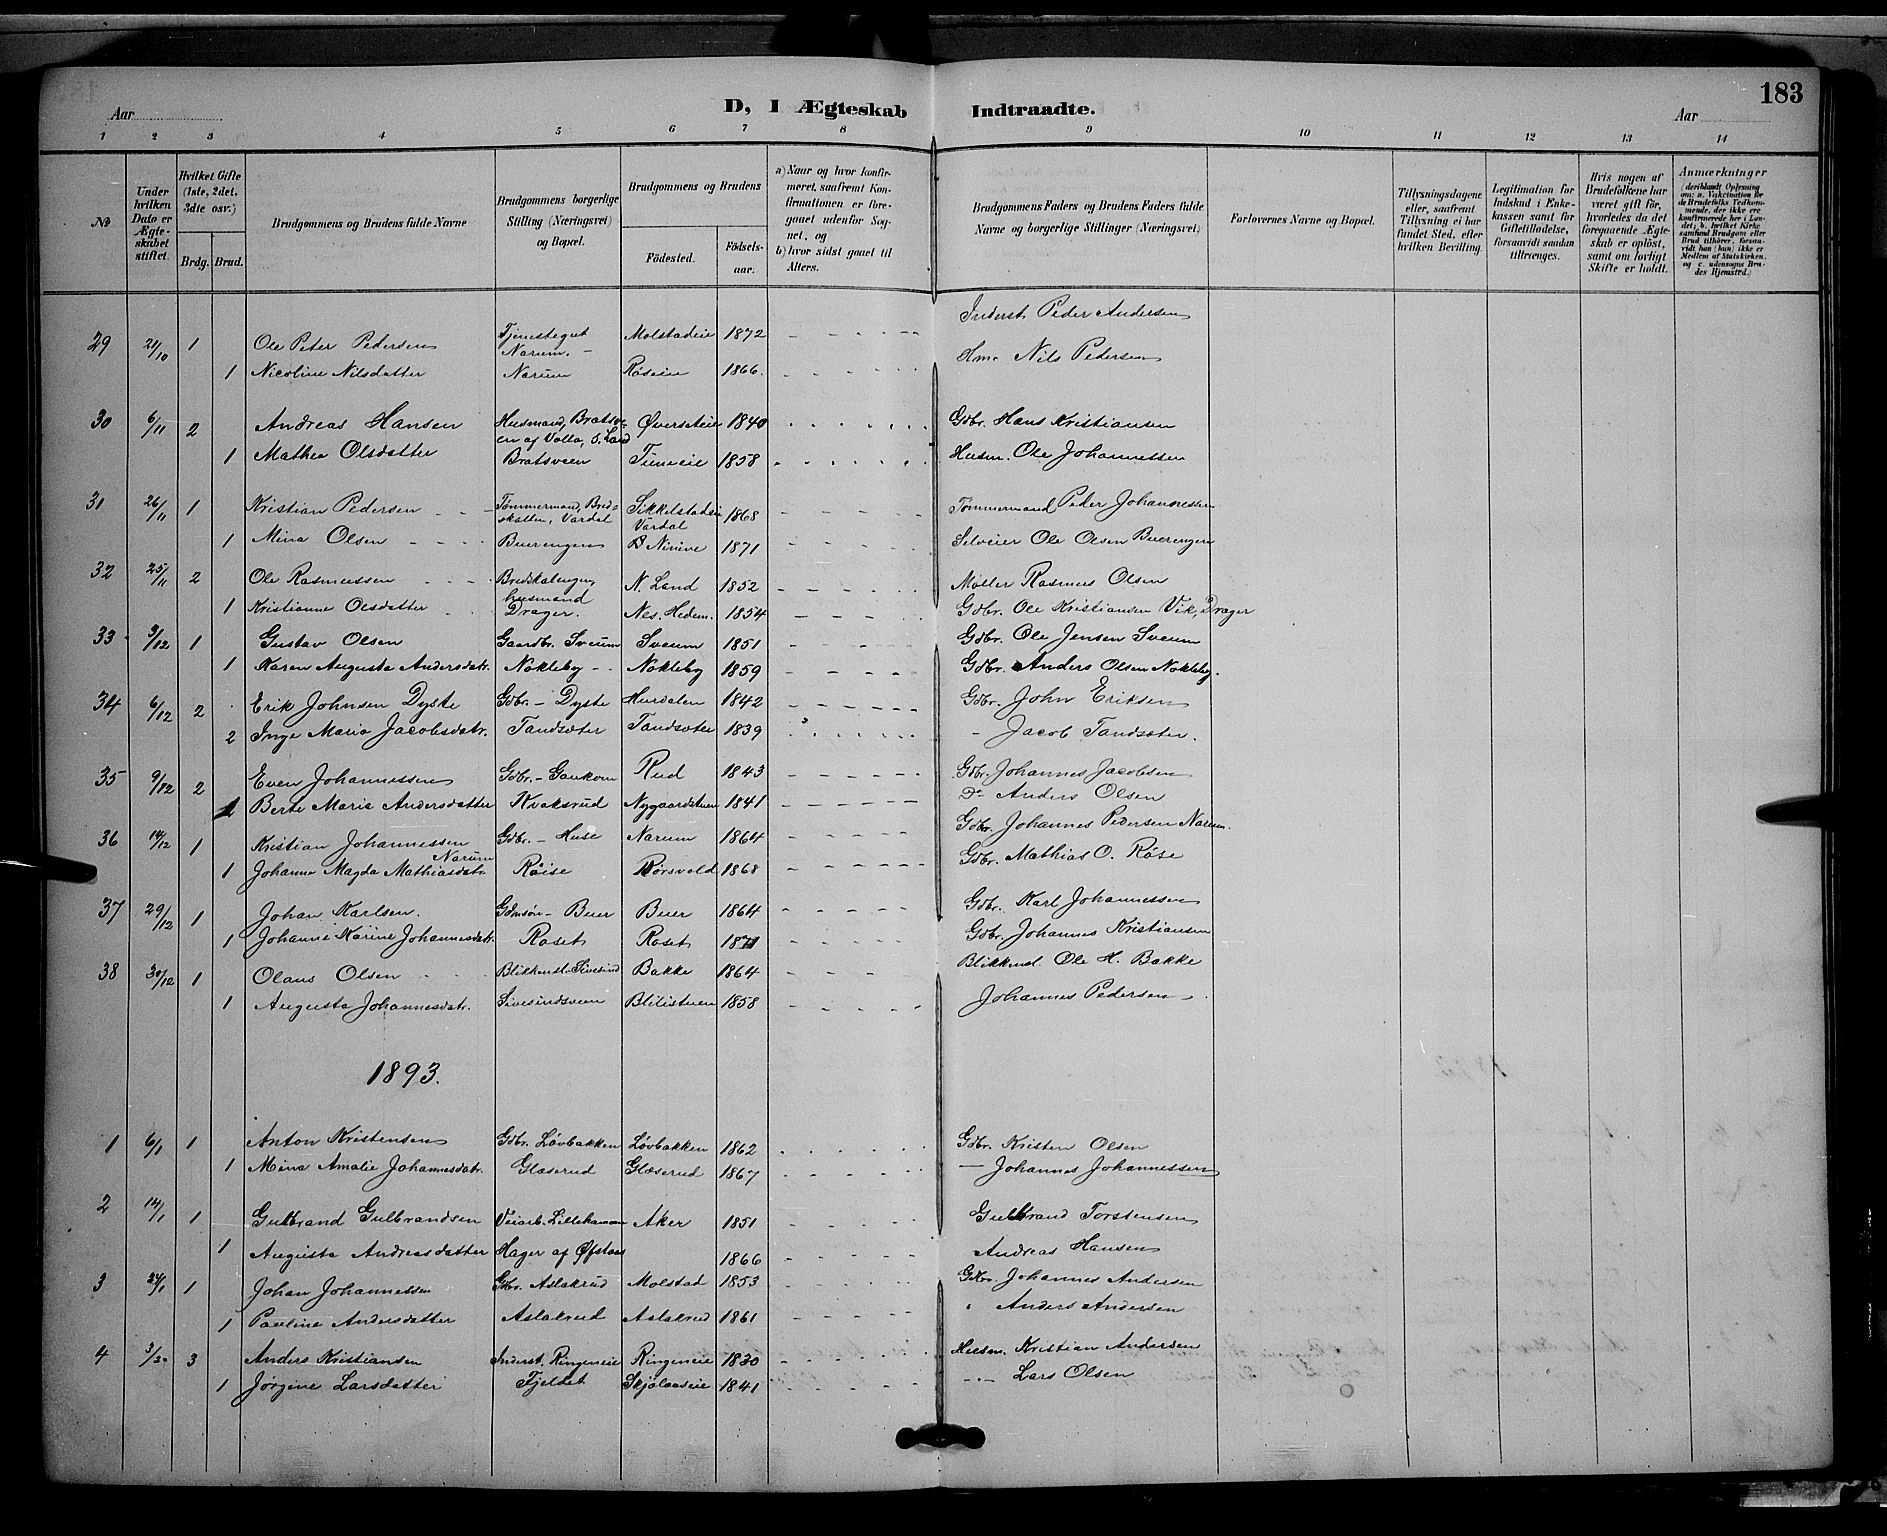 183
D, I Ægteskab Indtraadte.
Aar
Aar
1 2 3 4 5 6 7 8 9 10 11 12 13 14
No
Under hvilken Dato er Ægteskabet stiftet.
Hvilket Gifte (1ste, 2det. 3die osv.)
Brdg. Brud.
Brudgommens og Brudens fulde Navne
Brudgommens borgerlige Stilling (Næringsvei) og Bopæl.
Brudgommens og Brudens
Fødested. Fødselsaar.
a) Naar og hvor konfirmeret, saafremt Konfirmationen er foregaaet udenfor Sognet, og
b) hvor sidst gaaet til Alters.
Brudgommens Faders og Brudens Faders fulde Navne og borgerlige Stillinger (Næringsvei)
Forlovernes Navne og Bopæl.
Tillysningsdagene eller, saafremt Tillysning ei har fundet Sted, efter hvilken Bevilling.
Legitimation for Indskud i Enkekassen samt for Giftetilladelse, forsaavidt saadan tiltrænges.
Hvis nogen af Brudefolkene har været gift før, hvorledes da det foregaaende Ægteskab er opløst, samt om lovligt Skifte er holdt.
Anmærkninger
29 21/10 1 Ole Peter Pedersen Tjenestegut Narum. Molstadeie 1872 Inderst Peder Andersen
1 Nicoline Nilsdatter Narum Røseie 1866. Hmr Nils Pedersen
30 6/11 2 Andreas Hansen Husmand, Bratsveen af Volla, S. Land Øverseteie 1840 Gdbr. Hans Kristiansen
1 Mathea Olsdatter Bratsveen 1858 Husm. Ole Johannessen
31 26/11 1 Kristian Pedersen Tømmermand, Bredskallen, Vardal Sikkelstadeie Vardal 1868 Tømmermand Peder Johannessen
1 Mina Olsen Buerengen 1871 Selveier Ole Olsen Buerengen
32 25/11 2 Ole Rasmussen husmand N. Land 1852 Møller Rasmus Olsen
1 Kristianne Olsdatter Drager. Nes. Hedem. 1854 Gdbr. Ole Kristiansen Vik, Drager
33 3/12 1 Gustav Olsen Gaardbr. Sveum Sveum 1851 Gdbr. Ole Jensen Sveum
1 Karen Augusta Andersdatr. Nøkleby Nøkleby 1859 Gdbr. Anders Olsen Nøkleby.
34 6/12 2 Erik Johnsen Dyste Gdbr. - Dyste Hurdalen 1842 Gdbr. John Eriksen
2 Inge Maria Jacobsdatr. Tandsæter Tandsæter 1839 - Jacob Tandsæter.
35 9/12 2 Even Johannessen Gdbr. - Gaukom Rud 1843 Gdbr. Johannes Jacobsen
1 Berte Marie Andersdatter Kvaksrud Nygaardstuen 1841 Do Anders Olsen
36 14/12 1 Kristian Johannessen Narum Gdbr. - Huse Narum 1864 Gdbr. Johannes Pedersen Narum.
1 Johanne Magda Mathiasdatr. Røise Børsvold 1868 Gdbr. Mathias O. Røse
37 29/12 1 Johan Karlsen. Gdmsøn - Buer Buer 1864 Gdbr. Karl Johannessen
1 Johanne Karine Johannesdatr. Roset Roset 1871 Gdbr. Johannes Kristiansen
38 30/12 1 Olaus Olsen Blikkensl. Sivesind Bakke 1864 Blikkensl. Ole H. Bakke
1 Augusta Johannesdatr. Sivesindsveen Blilistuen 1858 Johannes Pedersen
1893.
1 6/1 1 Anton Kristensen Gdbr. Løvbakken Løvbakken 1862 Gdbr. Kristen Olsen
1 Mina Amalie Johannesdatr. Glæserud Glæserud 1867 - Johannes Johannessen
2 14/1 1 Gulbrand Gulbrandsen Veiarb. Lillehammer Aker 1851 Gulbrand Torstensen
1 Augusta Andreasdatter Hager af Øfstaas 1866 Andreas Hansen
3 24/1 1 Johan Johannessen Gdbr. Aslakrud Molstad 1853 Gdbr. Johannes Andersen
1 Pauline Andersdatter Aslakrud Aslakrud 1861 " Anders Andersen
4 3/2 3 Anders Kristiansen Inderst. Ringeneie Ringeneie 1830 Husm. Kristian Andersen
1 Jørgine Larsdatter Fjeldet Skjølaaseie 1841 Lars Olsen